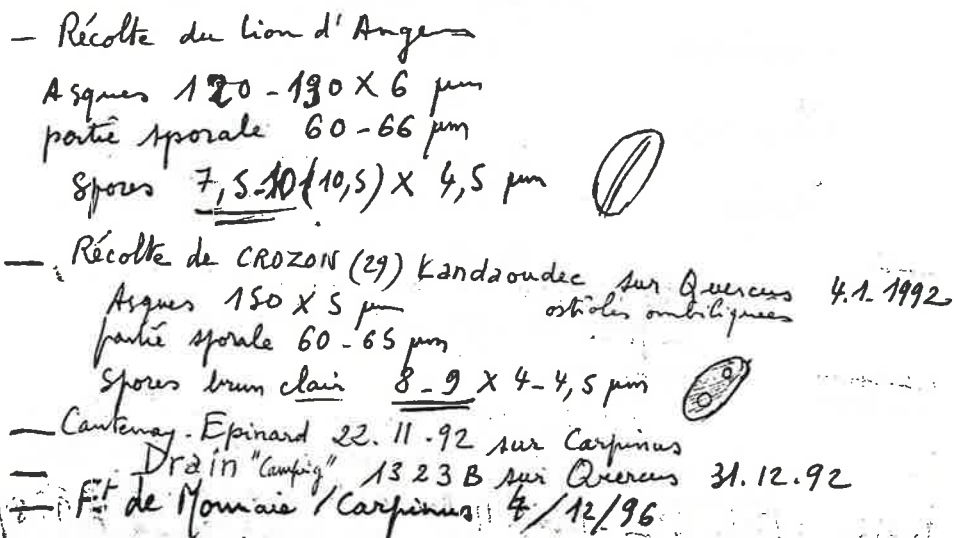 – Récolte du Lion d'Angers
Asques 120-130 X 6 µm
partie sporale 60-66 µm
Spores 7,5-10 (10,5) X 4,5 µm
— Récolte de CROZON (29) Kandaoudec sur Quercus 4.1.1992
Asques 150 X 5 µm ostioles ombiliquées
partie sporale 60-65 µm
Spores brun clair 8-9 X 4-4,5 µm
— Cantenay-Epinard 22.11.92 sur Carpinus
— Drain "Camping", 1323B sur Quercus 31.12.92
— Ft de Monnaie / Carpinus /12/96